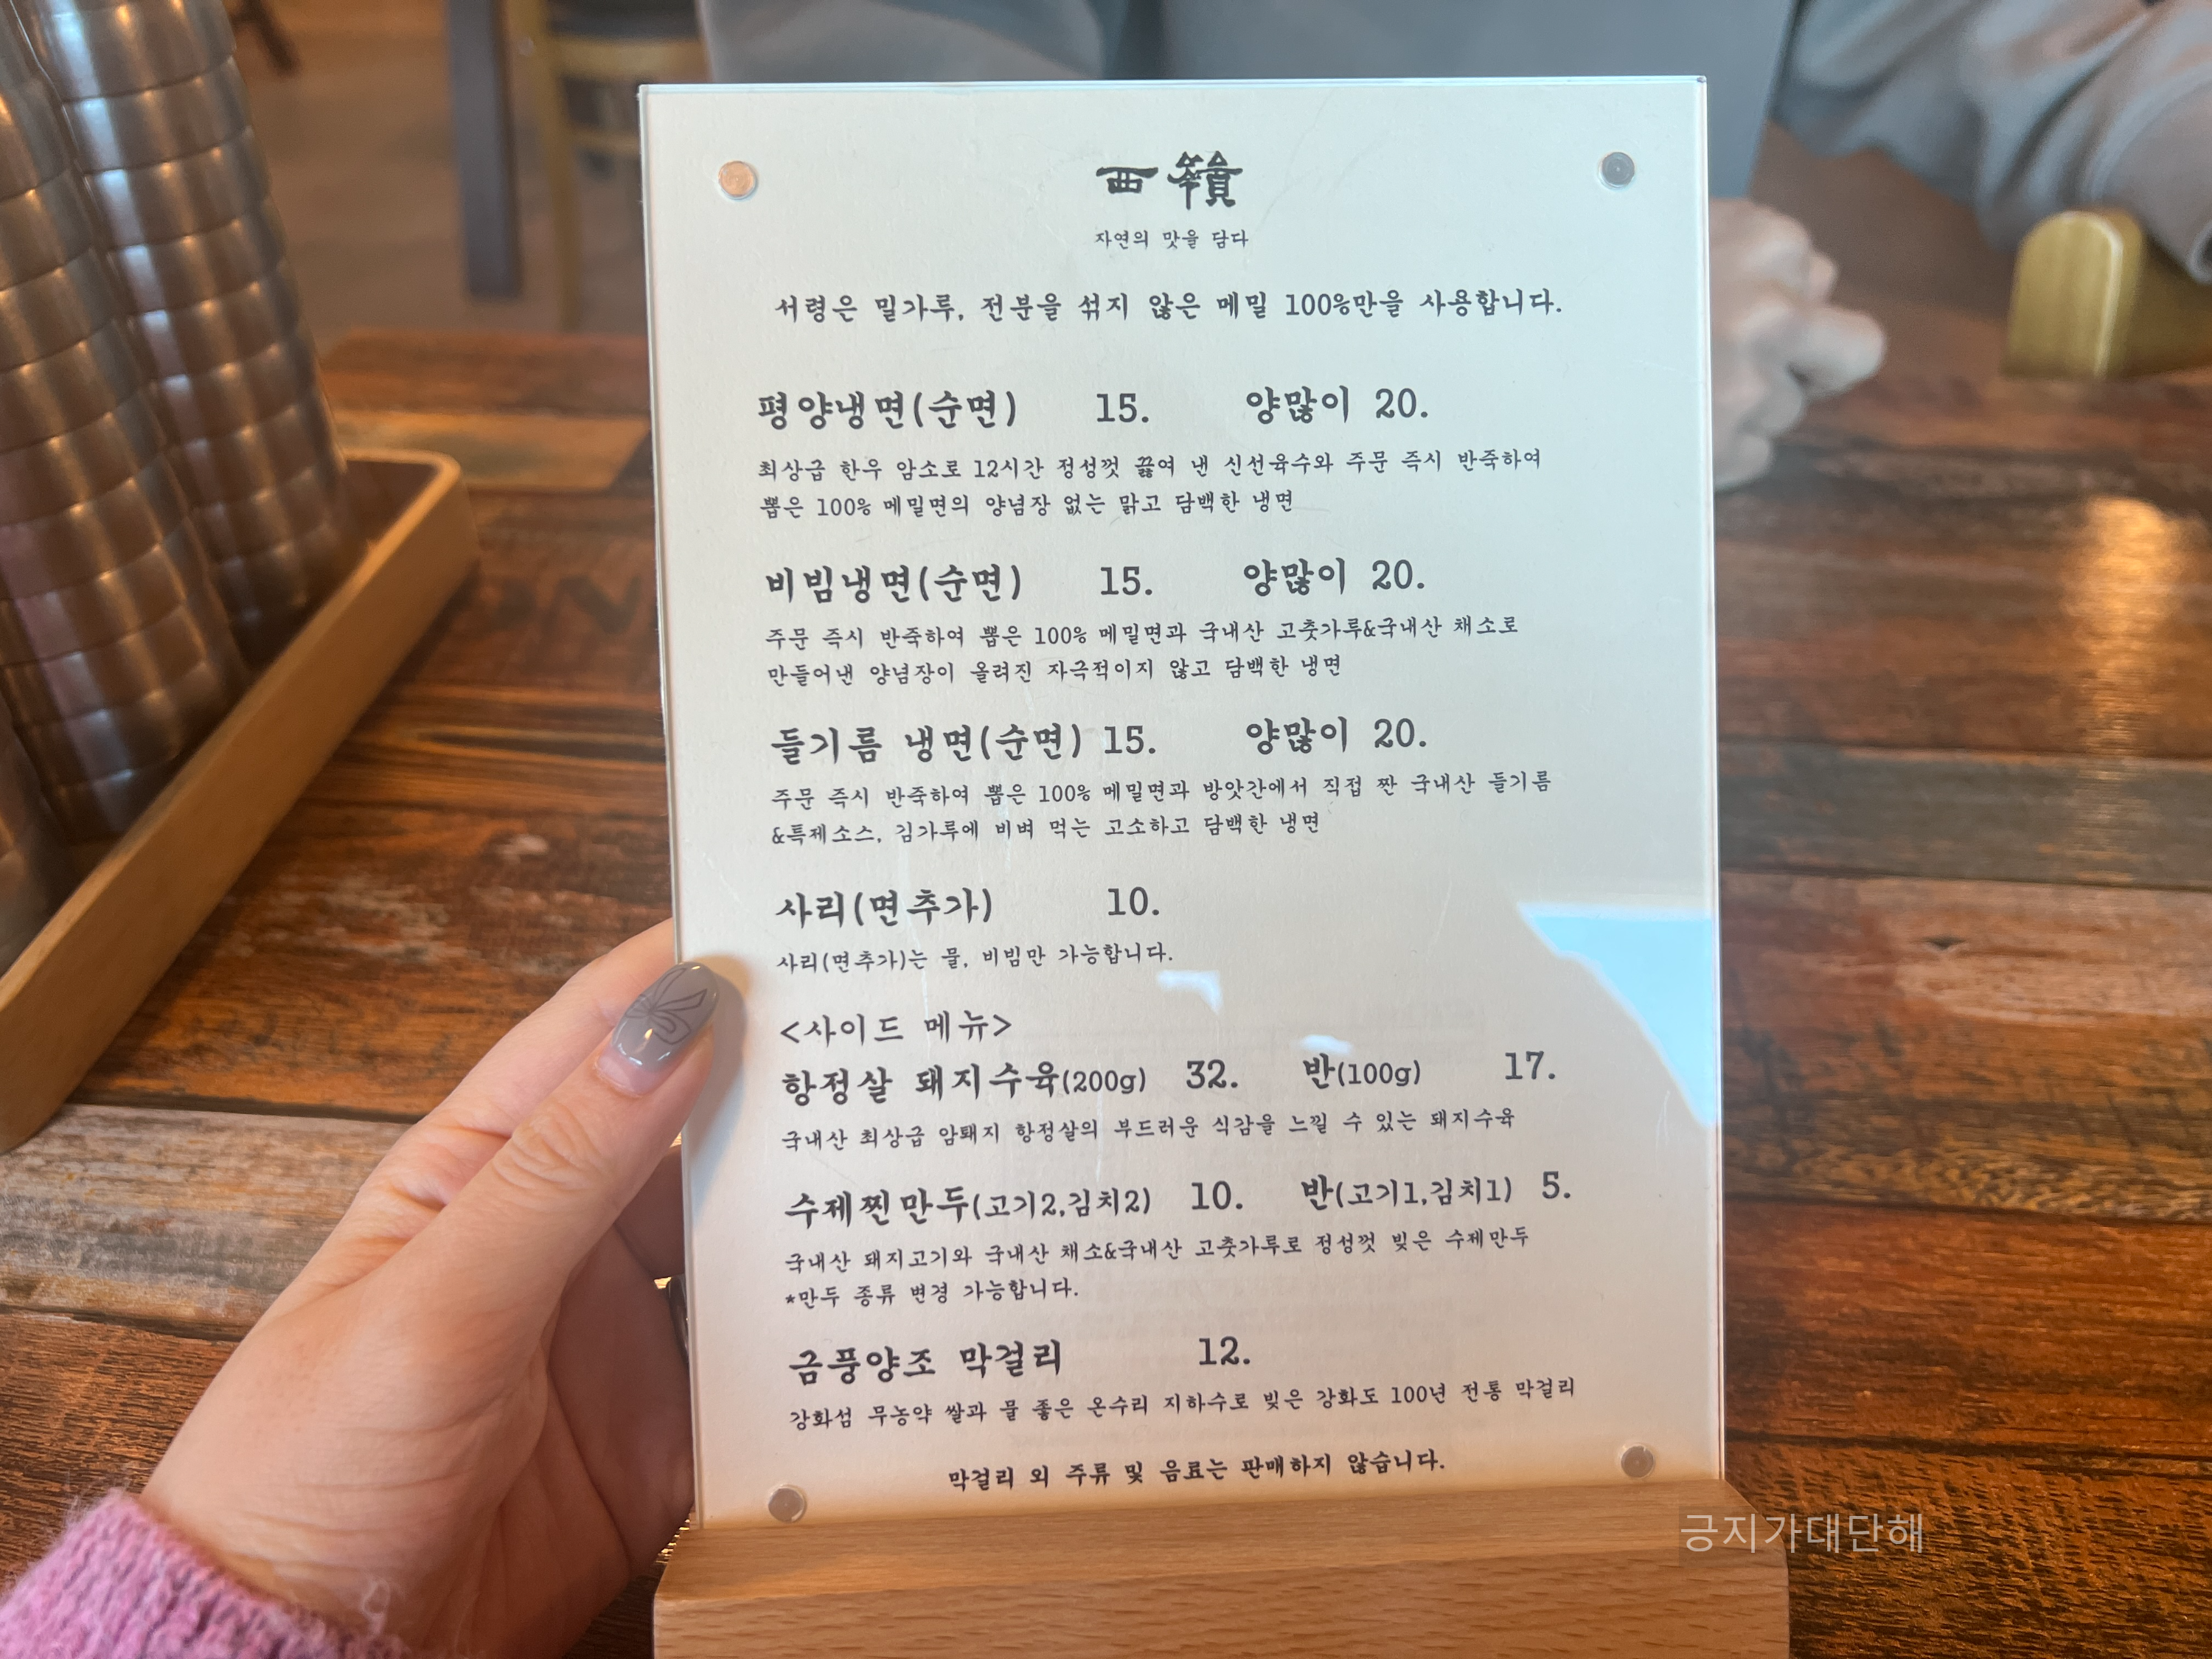 자연의 맛을 담다
서령은 밀가루, 전분을 섞지 않은 메밀 100%만을 사용합니다.
평양냉면(순면) 15. 양많이 20.
최상급 한우 암소로 12시간 정성껏 끓여 낸 신선육수와 주문 즉시 반죽하여
뽑은 100% 메밀면의 양념장 없는 맑고 담백한 냉면
비빔냉면(순면) 15. 양많이 20.
주문 즉시 반죽하여 뽑은 100% 메밀면과 국내산 고춧가루&국내산 채소로
만들어낸 양념장이 올려진 자극적이지 않고 담백한 냉면
들기름 냉면(순면) 15. 양많이 20.
주문 즉시 반죽하여 뽑은 100% 메밀면과 방앗간에서 직접 짠 국내산 들기름
&특제소스, 김가루에 비벼 먹는 고소하고 담백한 냉면
사리(면추가) 10.
사리(면추가)는 물, 비빔만 가능합니다.
<사이드 메뉴>
항정살 돼지수육(200g) 32. 반(100g) 17.
국내산 최상급 암퇘지 항정살의 부드러운 식감을 느낄 수 있는 돼지수육
수제찐만두(고기2,김치2) 10. 반(고기1,김치1) 5.
국내산 돼지고기와 국내산 채소&국내산 고춧가루로 정성껏 빚은 수제만두
*만두 종류 변경 가능합니다.
금풍양조 막걸리 12.
강화섬 무농약 쌀과 물 좋은 온수리 지하수로 빚은 강화도 100년 전통 막걸리
막걸리 외 주류 및 음료는 판매하지 않습니다.
긍지가대단해